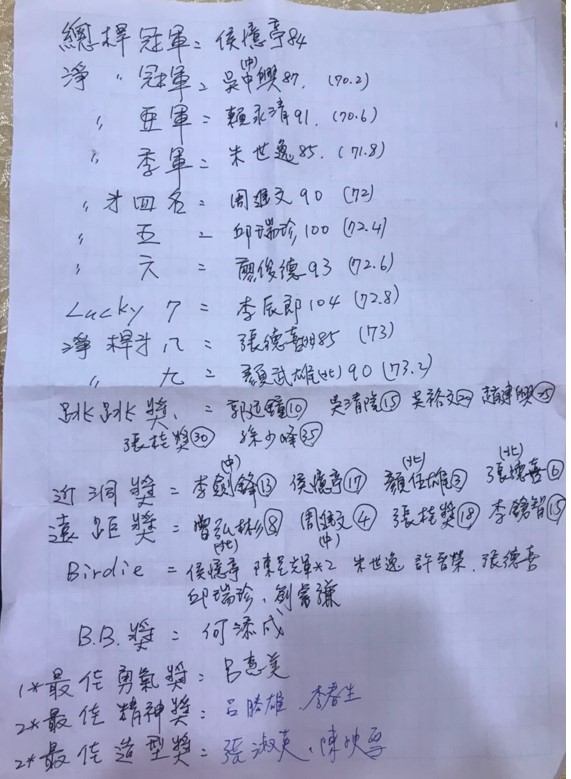 總桿冠軍=侯憶亭84
淨 〃 冠軍=吳中興(中)87. (70.2)
〃 亞軍=賴永清91. (70.6)
〃 季軍=朱世逸85. (71.8)
〃 第四名=周進文90 (72)
〃 五 = 邱瑞珍100 (72.4)
〃 六 = 廖俊德93 (72.6)
Lucky 7 = 李辰郎104 (72.8)
淨桿第八=張德喜(北)85 (73)
〃 九=顏武雄(北)90 (73.2)
跳跳獎.=郭廷鐘⑩ 吳清隆⑮ 吳裕文⑳ 趙建興㉕
張桂獎㉚ 徐少峰㉟
近洞獎=李劍鋒(中)⑬ 侯憶亭⑰ 顏任雄(北)③ 張德喜(北)⑥
遠距獎=曾弘彬(北)⑧ 周進文(中)④ 張桂獎⑱ 李鎗智⑮
Birdie = 侯憶亭 陳 *2 朱世逸 許晉榮. 張德喜
邱瑞珍. 劉富謙
B.B.獎=何添成
1*最佳勇氣獎:呂惠美
2*最佳精神獎:呂勝雄. 李春生
2*最佳造型獎:張淑英. 陳映